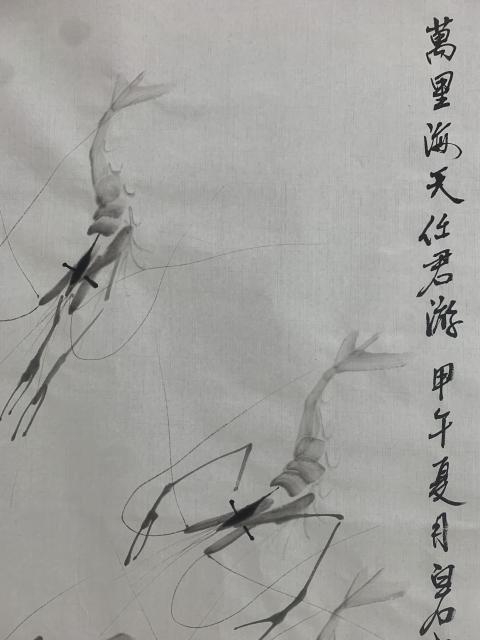 萬里海天任君游 甲午夏月白石